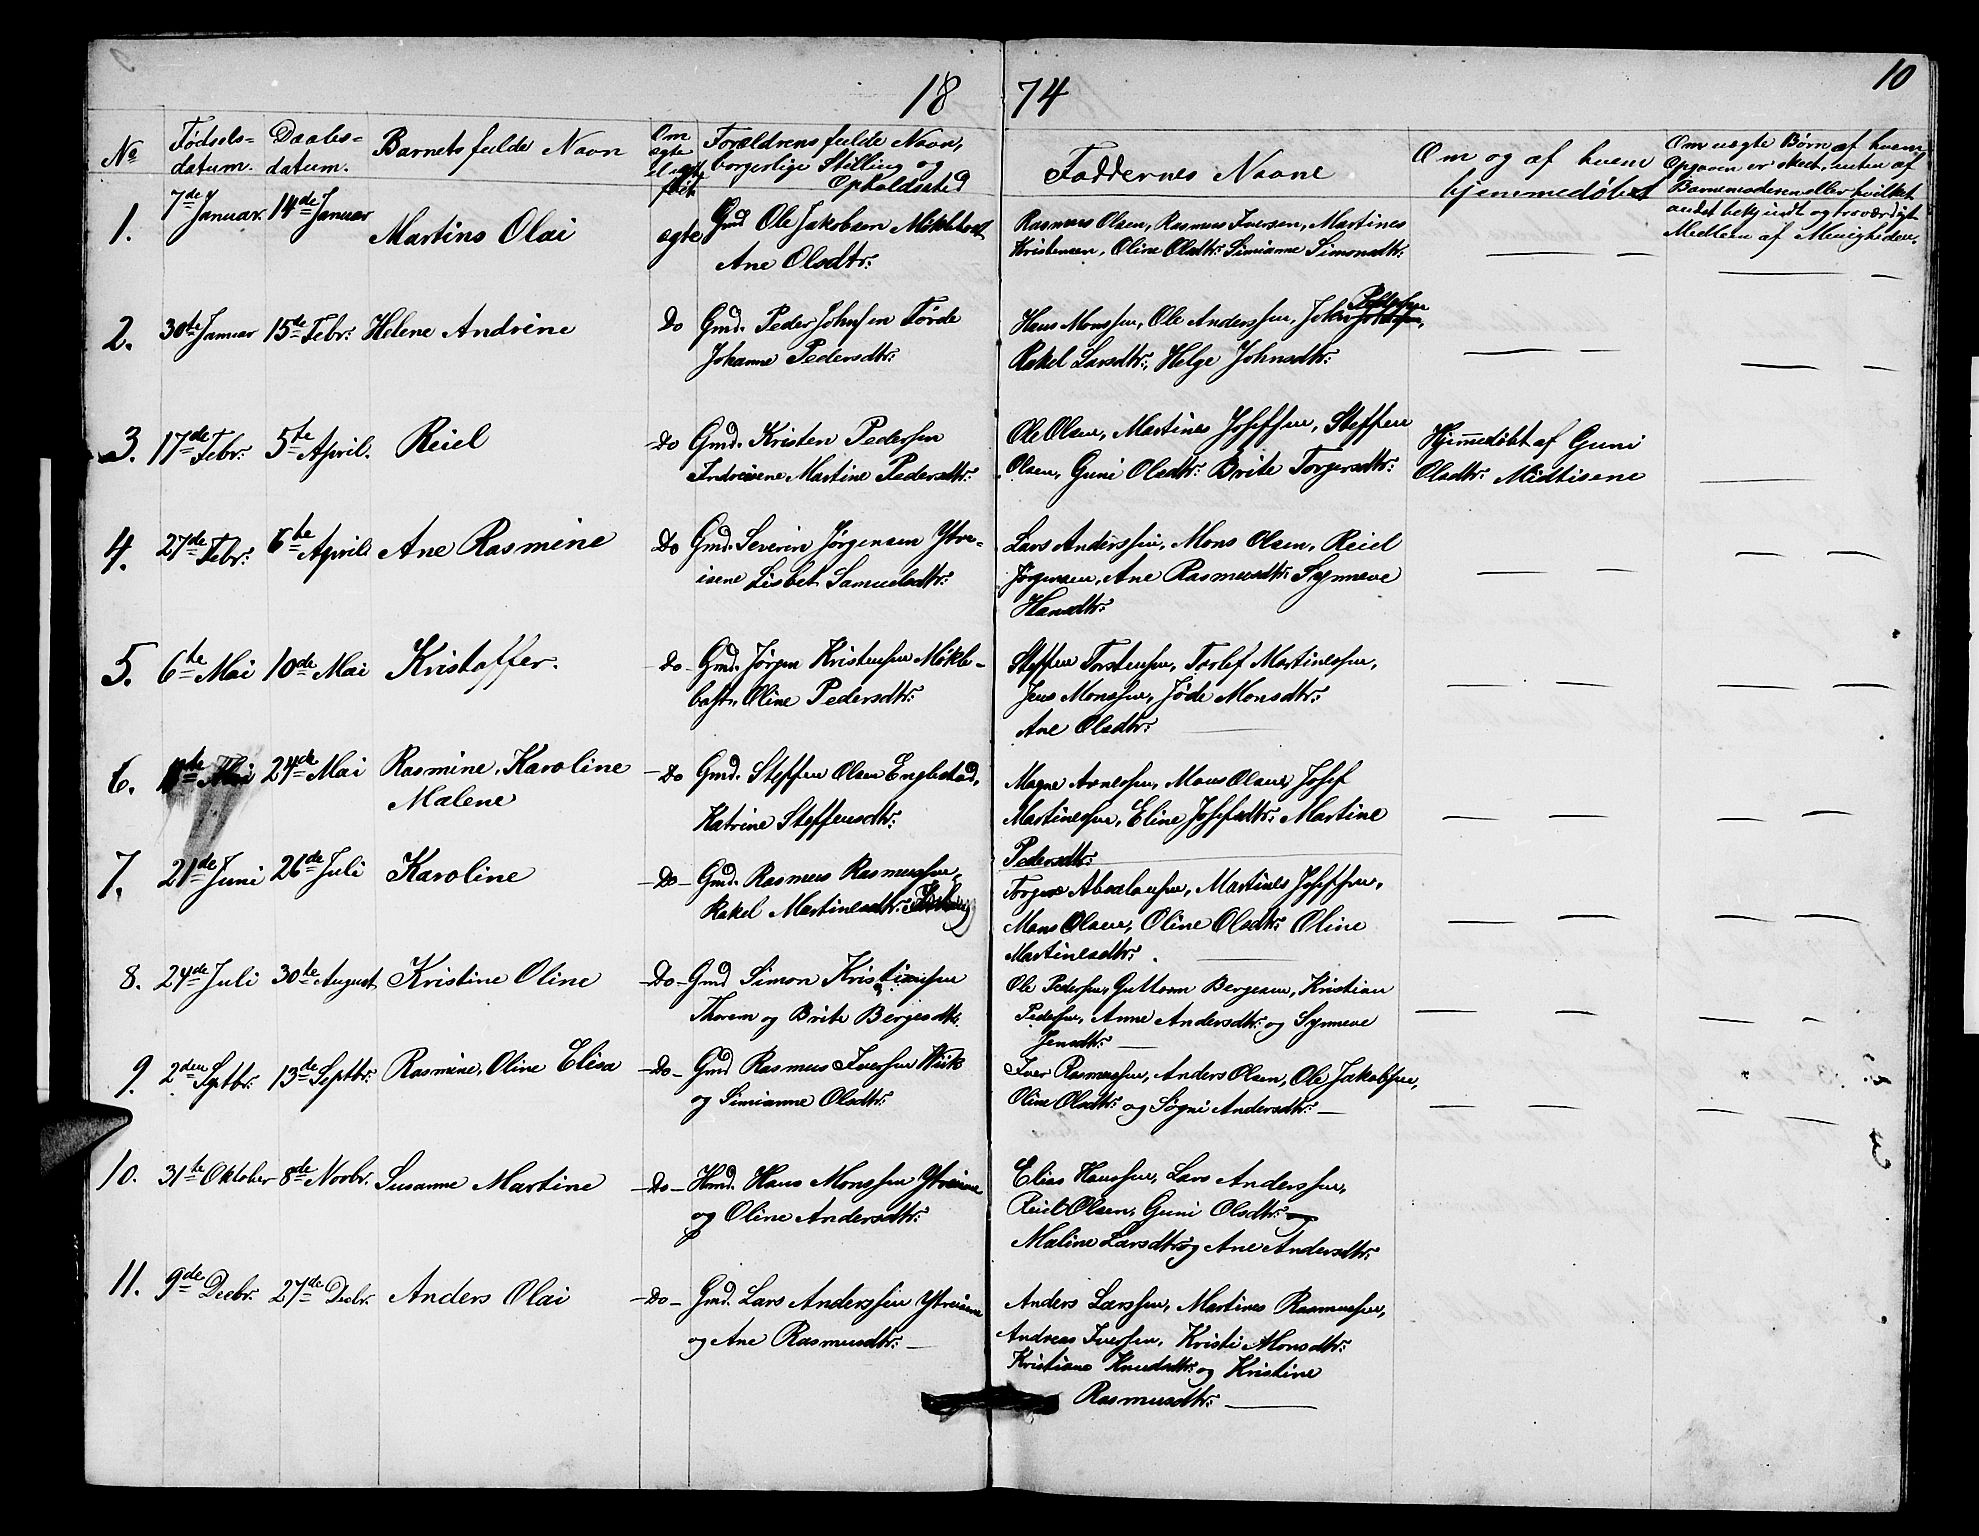 18 74
10
No Fødsels- datum. Daabs- datum. Barnets fulde Navn Om ægte el. uægte født Forældrens fulde Navn, borgerlige Stilling og Opholdssted Faddernes Navne Om og af hvem hjemmedøbt Om uægte Børn af hvem Opgaven er skeet, enten af Barnemoderen eller hvilket andet bekjendt og troværdigt Medlem af Menigheden.
1. 7de Januar. 14de Januar Martins Olai ægte Gmd Ole Jakobsen Møklebost Rasmus Olsen, Rasmus Iversen, Martines
Ane Olsdtr: Kristensen, Oline Olsdtr: Simianne Simonsdtr:
2. 30te Januar 15de Febr: Helene Andrine Do Gmd. Peder Johnsen Førde Hans Monssen, Ole Anderssen, John Pedersen
Johanne Pedersdtr: Rakel Larsdtr:, Helge Johnsdtr:
3. 17de Febr: 5te April. Reiel Do Gmd. Kristen Pedersen Ole Olsen, Martines Josefsen, Steffen Hjemmedøbt af Guni
Martine Pedersdtr: Olsen, Guni Olsdtr: Brite Torgersdtr: Olsdtr: Midtisene
4. 27de Febr: 6te April Ane Rasmine Do Gmd. Severin Jørgensen Ytre- Lars Anderssen, Mons Olsen, Reiel
isene Lisbet Samuelsdtr: Jørgensen, Ane Rasmusdtr: Synneve
Hansdtr:
5. 6te Mai 10de Mai Kristoffer. Do Gmd. Jørgen Kristensen Møkle- Steffen Torstensen, Torlef Martinessen,
bost, Oline Pedersdtr: Jens Monssen, Jøde Monsdtr:
Ane Olsdtr:
6. Mai 24de Mai Rasmine, Karoline Do Gmd. Steffen Olsen Englestad, Magne Arnessen, Mons Olsen, Josef
Malene Katrine Steffensdtr: Martinessen, Eline Josefsdtr: Martine
Pedersdtr:
7. 21de Juni 26de Juli Karoline Do Gmd. Rasmus Rasmussen, Torger Absalonsen, Martines Josefsen,
Rakel Martinesdtr: Mons Olsen, Oline Olsdtr: Oline
Martinesdtr:
8. 24de Juli 30te August Kristine Oline Do Gmd Simon Kristiansen Ole Pedersen, Guttorm Bergesen, Kristian
Thorem og Brite Bergesdtr. Pedersen, Anne Andersdtr: og Synneve
Jensdtr:
9. 2den Septbr. 13de Septbr: Rasmine, Oline Elisa Do Gmd Rasmus Iversen Wiik Iver Rasmussen, Anders Olsen, Ole Jakobsen,
og Simianne Olsdtr: Oline Olsdtr: og Søgni Andersdtr:
10. 31te Oktober 8de Novbr. Susanne Martine Do Hmd. Hans Monssen Ytreisene Elias Hanssen, Lars Anderssen,
og Oline Andersdtr: Reiel Olsen, Guni Olsdtr:
Maline Larsdtr: og Ane Andersdtr:
11. 9de Decbr. 27de Decbr. Anders Olai Do Gmd. Lars Anderssen Ytreisene Anders Larssen, Martines Rasmussen,
og Ane Rasmusdtr: Andreas Iversen, Kristi Monsdtr:
Kristiane Knudsdtr: og Kristine
Rasmusdtr: